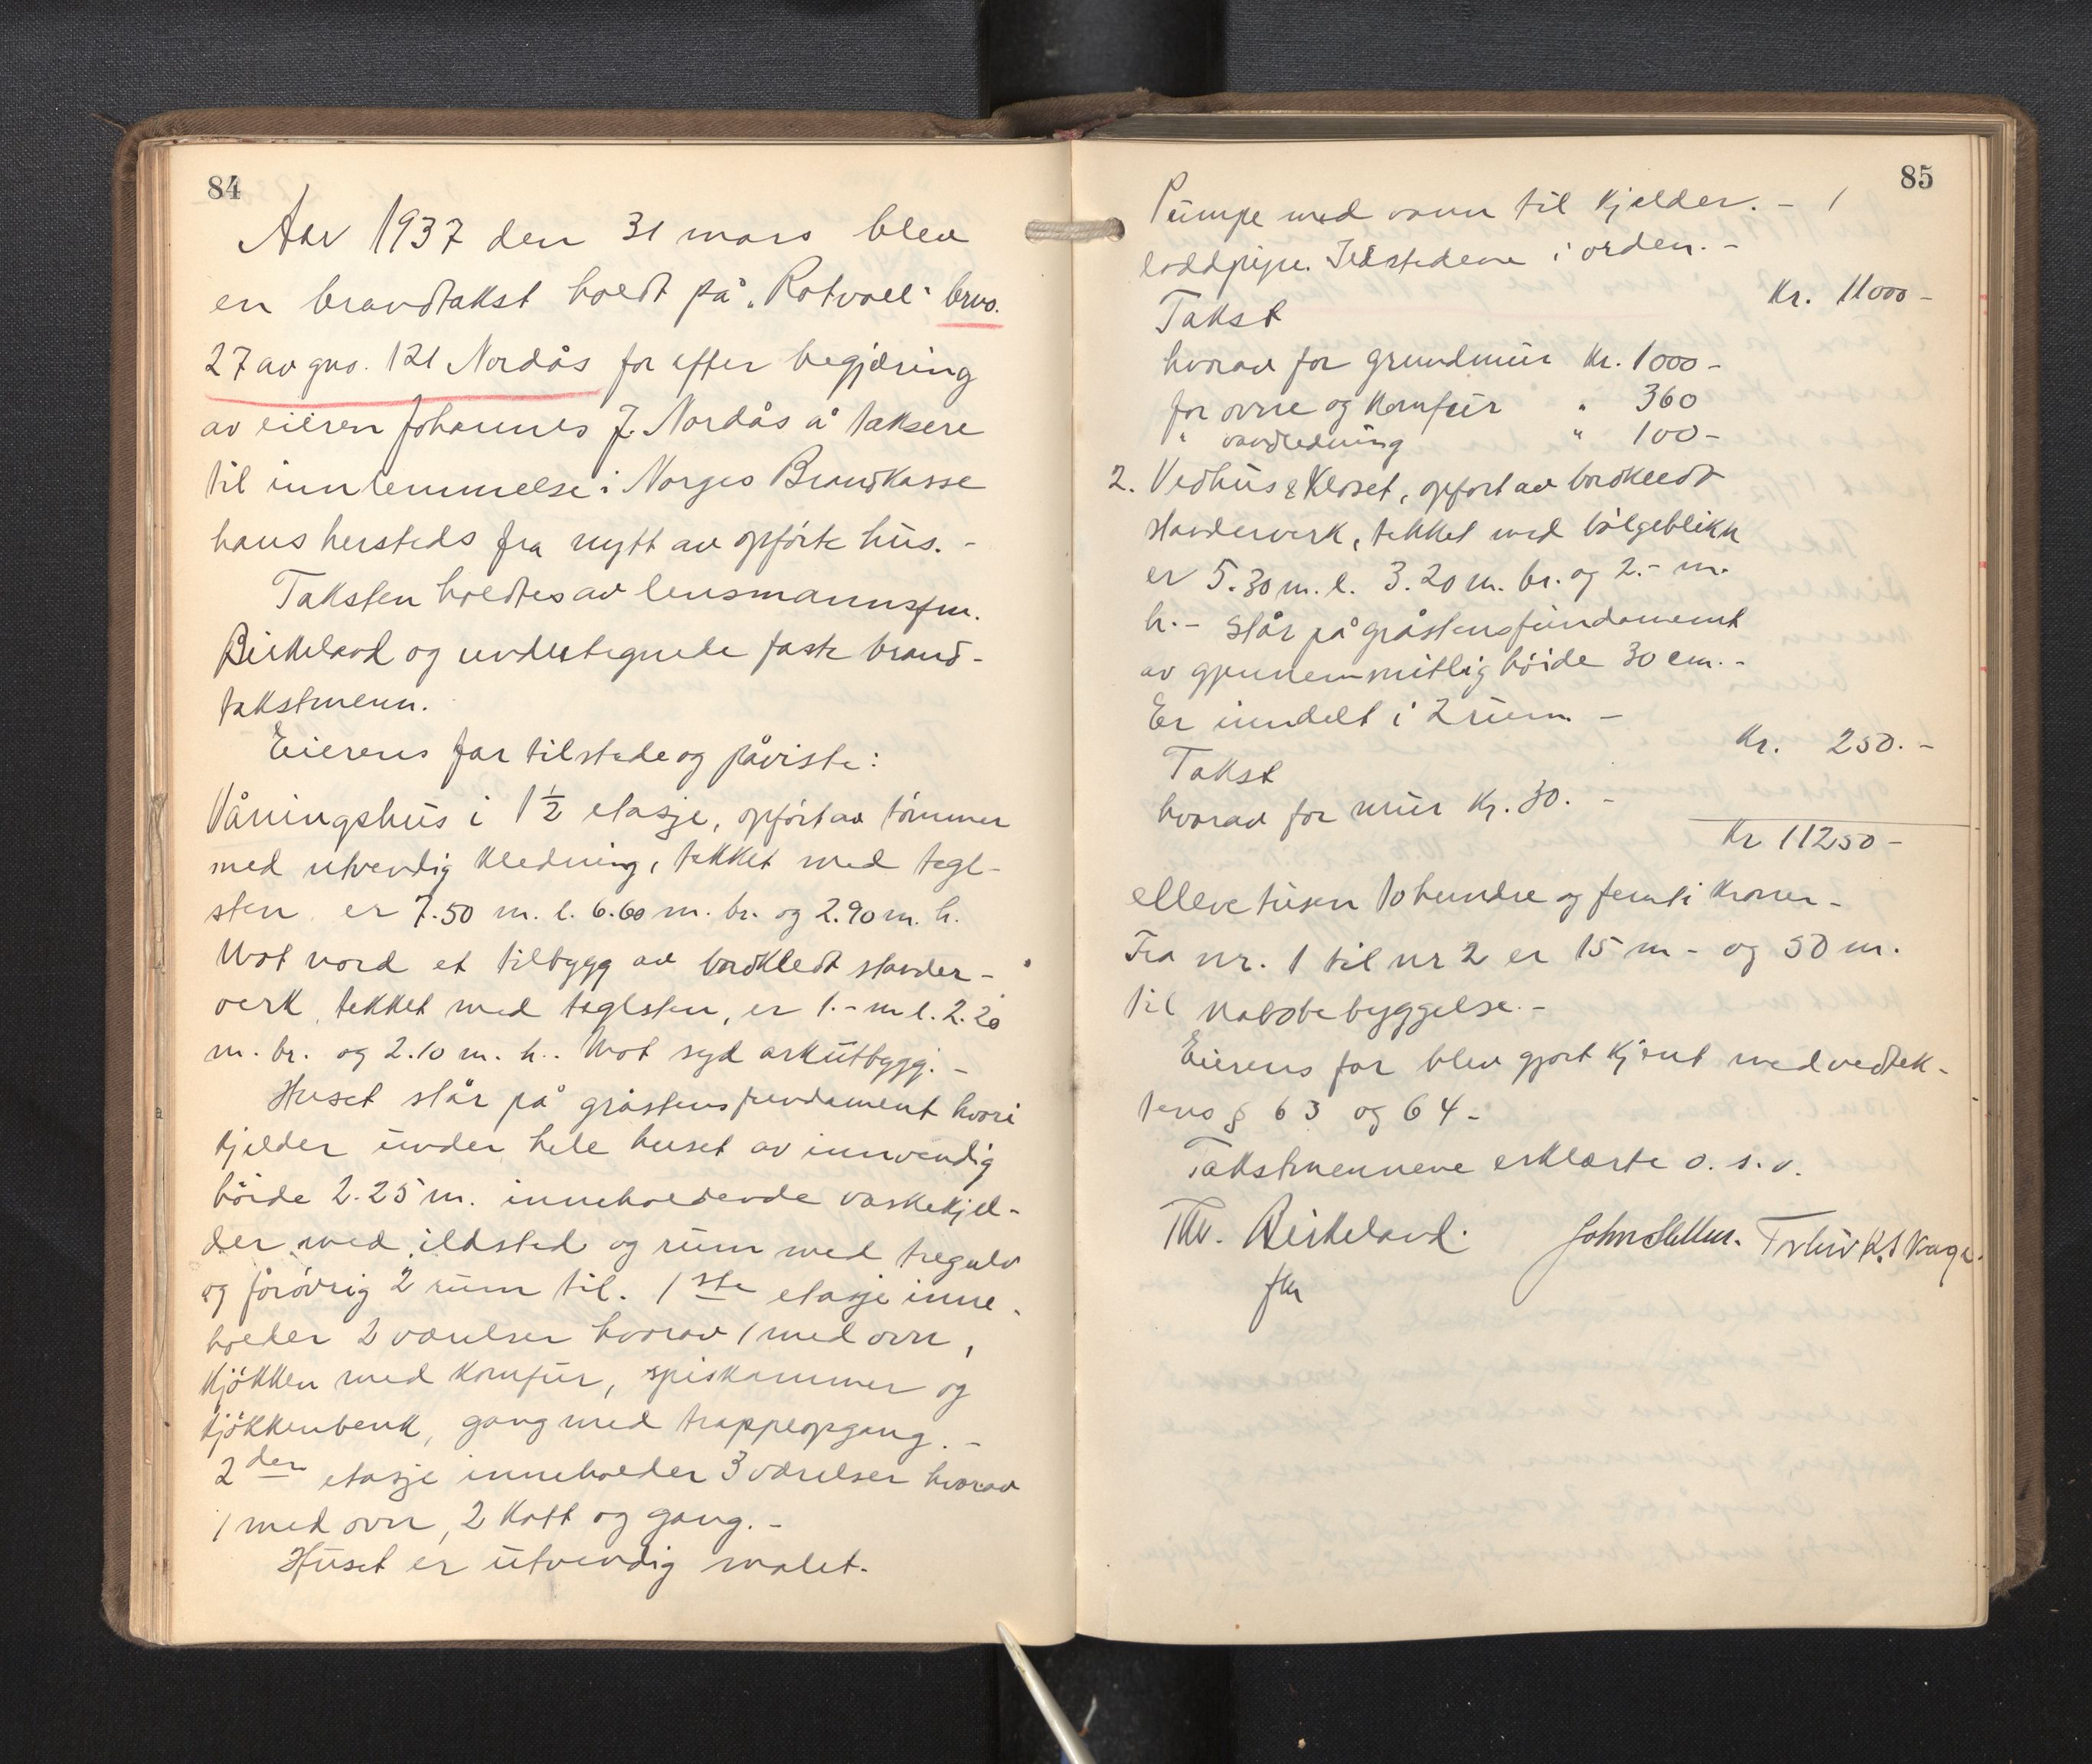 84
Aar 1937 den 31 mars blev
en brandtakst holdt på „Rotvoll" brno.
27 av gno. 121 Nordås for efter begjæring
av eieren Johannes J. Nordås å taksere
til innlemmelse i Norges Brandkasse
hans hersteds fra nytt av opførte hus. -
Taksten holdtes av lensmannsfm.
Birkeland og undertegnede faste brand-
takstmenn.
Eierens far tilstede og påviste:
Våningshus i 1½ etasje, opført av tømmer
med utvendig kledning, tekket med tegl-
sten er 7.50 m. l. 6.60 m. br. og 2.90 m. h.
Mot nord et tilbygg av bordkledt stander-
verk, tekket med teglsten, er 1.- m l. 2.20
m. br. og 2.10 m. h.. Mot syd arkutbygg. -
Huset står på gråstensfundament hvori
kjelder under hele huset av innvendig
høide 2.25 m. inneholdende vaskekjel-
der med ildsted og rum med tregulv
og forøvrig 2 rum til. 1ste etasje inne-
holder 2 værelser hvorav 1 med ovn,
kjøkken med komfur, spiskammer og
kjøkkenbenk, gang med trappeopgang. -
2den etasje inneholder 3 værelser hvorav
1 med ovn, 2 kott og gang. -
Huset er utvendig malet.
85
Pumpe med vann til kjelder. - 1
loddpipe. Ildstedene i orden. -
Takst Kr. 11000 -
hvorav for grundmur Kr. 1000 -
for ovne og komfur " 360
" vandledning " 100 -
2. Vedhus & Kloset, opført av bordkledt
standerverk, tekket med bølgeblikk
er 5.30 m. l. 3.20 m. br. og 2.- m.
h. - står på gråstensfundament
av gjennemsnitlig høide 30 cm. -
Er inndelt i 2 rum -
Takst Kr. 250. -
hvorav for mur Kr. 30. -
Kr 11250 -
elleve tusen to hundre og femti kroner -
Fra nr. 1 til nr 2 er 15 m - og 50 m.
til nabobebyggelse. -
Eierens far blev gjort kjent med vedtek-
tens § 63 og 64 -
Takstmennene erklærte o. s. v.
Thv. Birkeland.
fm